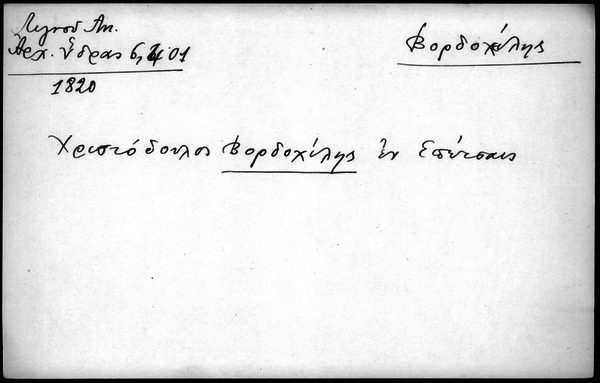 Λιγνοῦ Ἀπ.
Ἀρχ. Ὕδρας 6, 401
1820
Βορδοχείλης
Χριστόδουλος Βορδοχείλης ἐν Σπέτσαις